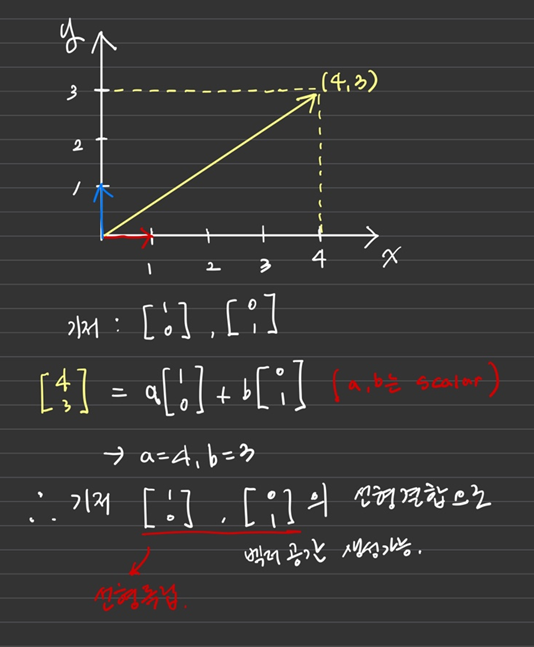 y
3
(4,3)
2
1
1 2 3 4 x
기저 : [1 0], [0 1]
[4 3] = a[1 0] + b[0 1] (a,b는 scalar)
→ a=4, b=3
∴ 기저 [1 0], [0 1]의 선형결합으로
벡터 공간 생성가능.
선형독립.